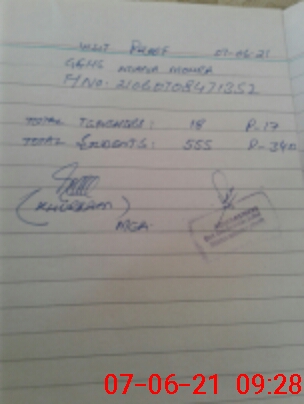 VISIT PROOF 07-06-21
GGHS
A/NO: 21060708471352
TOTAL TEACHERS: 18 P-17
TOTAL STUDENTS: 555 P-340
(KHURRAM)
MEA
07-06-21 09:28